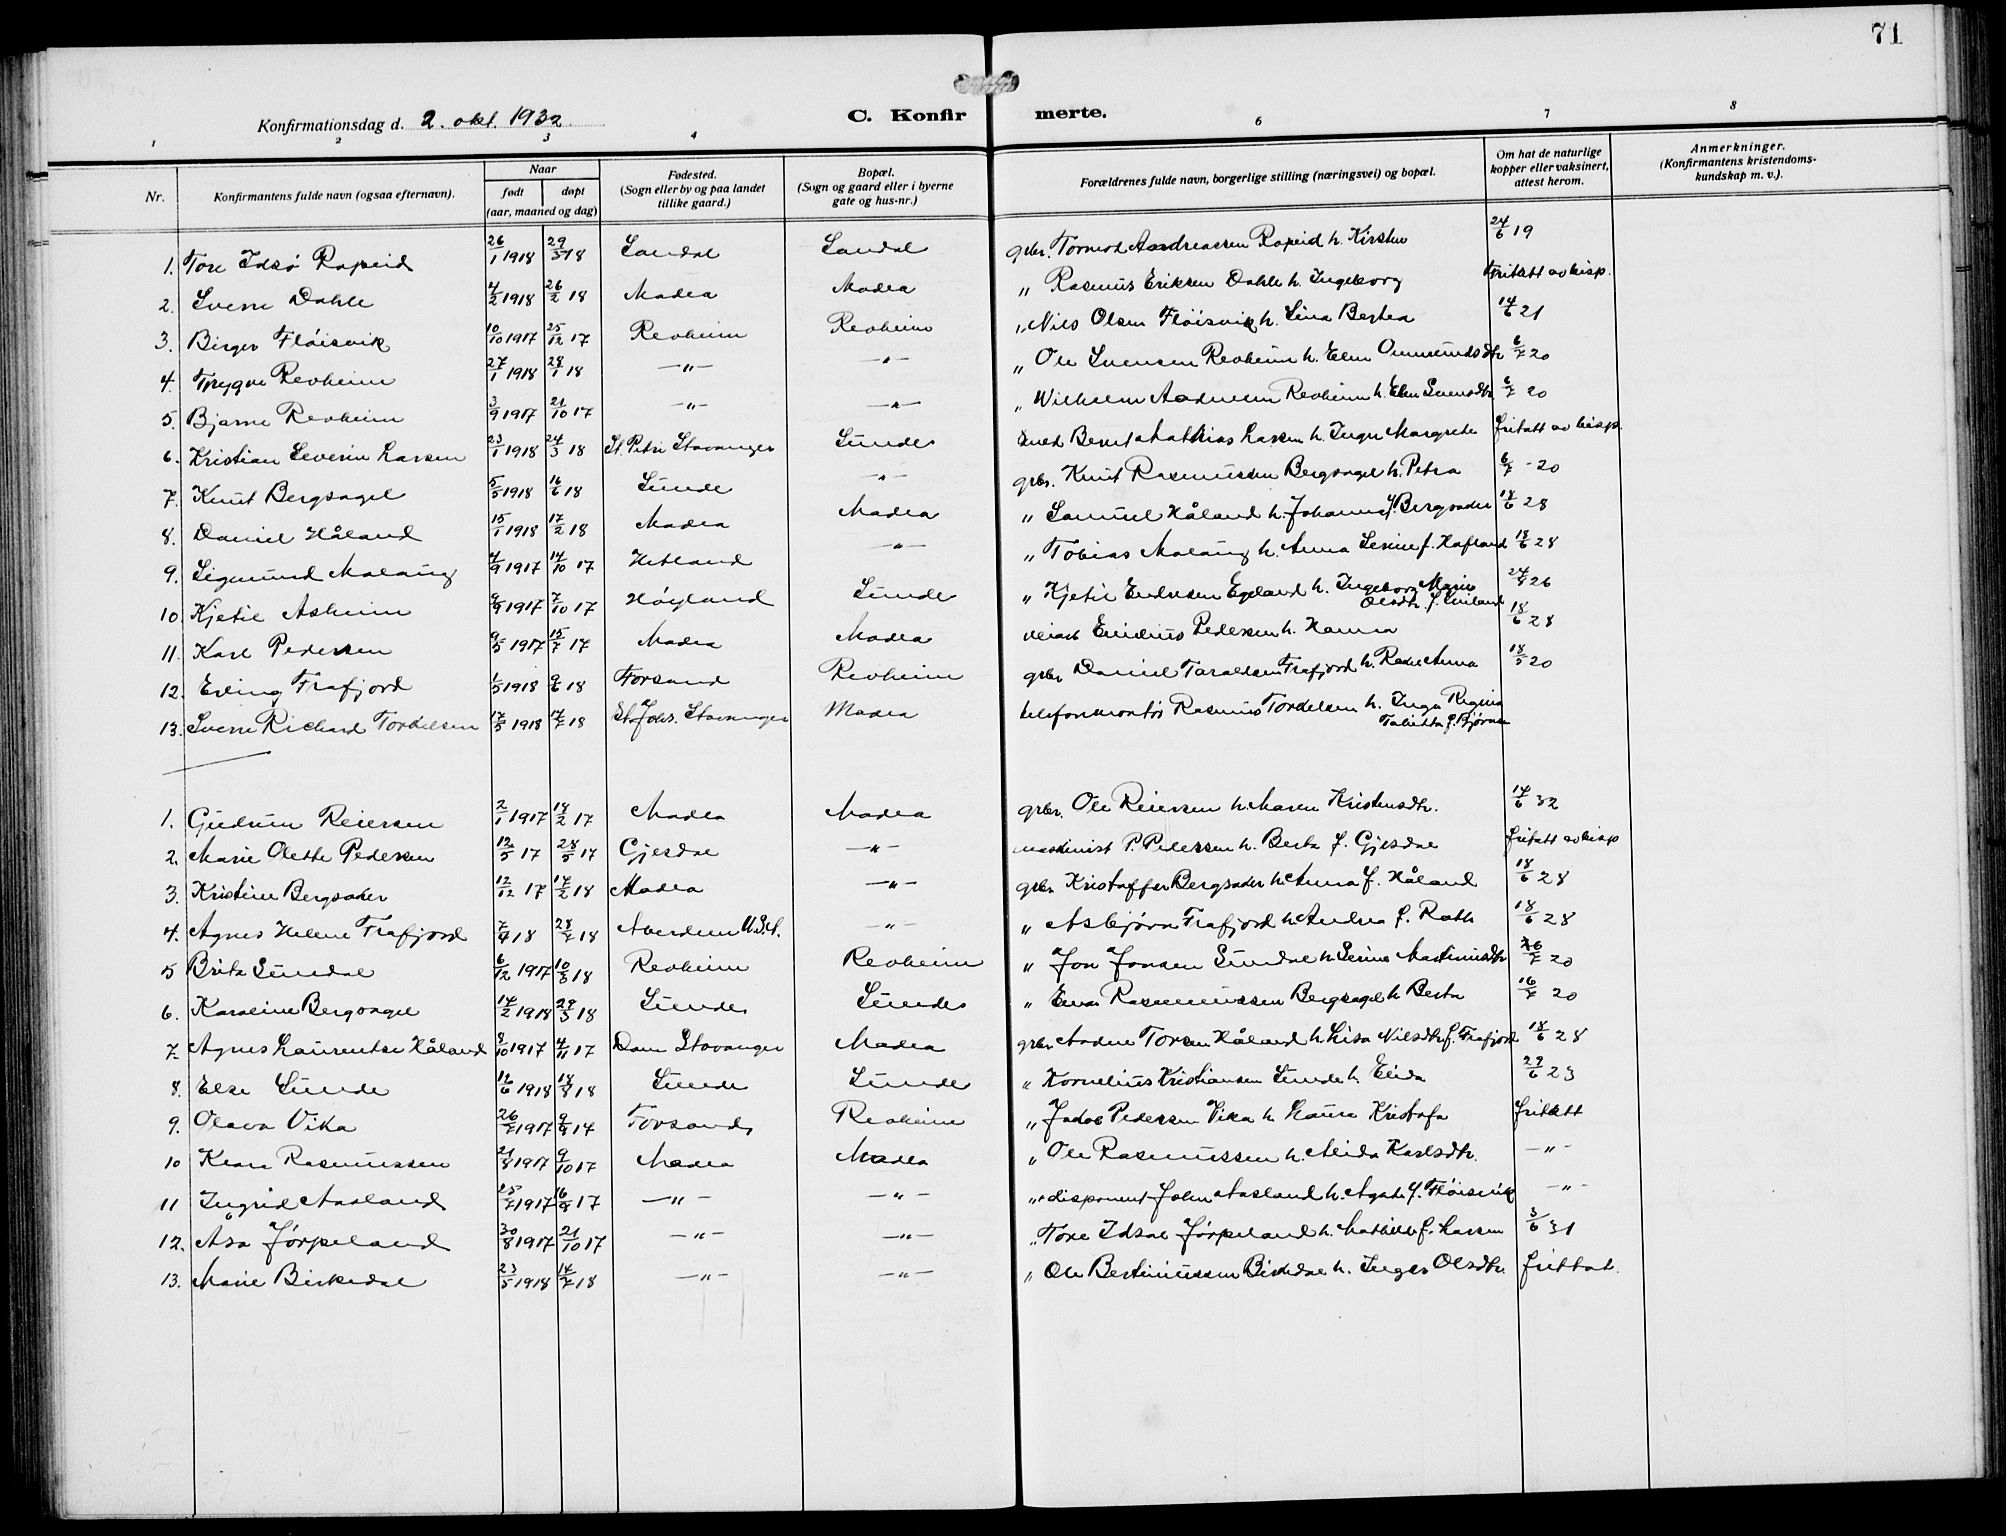 71
Konfirmationsdag d. 2. okt. 1932
C. Konfirmerte.
1 2 3 4 6 7 8
Nr. | Konfirmantens fulde navn (ogsaa efternavn). | Naar født døpt (aar, maaned og dag) | Fødested. (Sogn eller by og paa landet tillike gaard.) | Bopæl. (Sogn og gaard eller i byerne gate og hus-nr.) | Forældrenes fulde navn, borgerlige stilling (næringsvei) og bopæl. | Om hat de naturlige kopper eller vaksinert, attest herom. | Anmerkninger. (Konfirmantens kristendoms-kundskap m. v.).
1. Tore Idsø Rapeid 26/1 1918 29/3 18 Sandal Sandal grbr. Tormod Andreassen Rapeid h. Kirsten 24/6 19
2. Sverre Dahle 4/2 1918 26/2 18 Madla Madla " Rasmus Eriksen Dahle h. Ingeborg fritatt av bisp.
3. Birger Fløisvik 10/10 1917 25/12 17 Revheim Revheim " Nils Olsen Fløisvik h. Lina Bertea 14/6 21
4. Trygve Revheim 27/1 1918 28/1 18 -"- -"- " Ole Svensen Revheim h. Elen Ommundsdtr 6/7 20
5. Bjarne Revheim 3/9 1917 21/10 17 -"- -"- " Wilhelm Aadnesen Revheim h. Elen Svensdtr 6/7 20
6. Kristian Severin Larsen 23/1 1918 24/3 18 St. Petri Stavanger Sunde Bernt Mathias Larsen h. Inger Margrete fritatt av bisp.
7. Knut Bergsagel 5/5 1918 16/6 18 Sunde -"- grbr. Knut Rasmussen Bergsagel h. Petra 6/7 - 20
8. Daniel Håland 15/1 1918 17/2 18 Madla Madla " Samuel Håland h. Johanne f. Bergsaker 18/6 28
9. Sigmund Malaug 4/9 1917 14/10 17 Hetland -"- " Tobias Malaug h. Anna Serine f. Hafland 18/6 28
10. Kjetil Asheim 9/9 1917 7/10 17 Høyland Sunde " Kjetil Endresen Egeland h. Ingeborg Marie Olsdtr. 24/8 26
11. Karl Pedersen 9/5 1917 15/7 17 Madla Madla Emilius Pedersen h. Hanna 18/6 28
12. Erling Frafjord 1/5 1918 9/6 18 Forsand Revheim grbr Daniel Taraldsen Frafjord h. Anna 18/5 20
13. Sverre Richard Torkelsen 17/5 1918 14/7 18 St. Johs. Stavanger Madla telefonmontør Rasmus Torkelsen h. Inga Regina Tabitta f. Bjørnsen
1. Gudrun Reiersen 2/1 1917 18/2 17 Madla Madla grbr. Ole Reiersen h. Maren Kristensdtr. 14/6 32
2. Marie Olette Pedersen 12/5 17 28/5 17 Gjesdal -"- maskinist P. Pedersen h. Berta f. Gjesdal fritatt av bisp
3. Kristine Bergsaker 12/12 17 17/2 18 Madla -"- grbr Kristoffer Bergsaker h. Anna f. Håland 18/6 28
4. Agnes Helene Frafjord 7/4 18 28/7 18 Aberdeen U.S.A. -"- " Asbjørn Frafjord h. Andrea f. Roth 18/6 28
5 Brita Sundal 6/12 1917 10/3 18 Revheim Revheim " Jon Jonsen Sundal h. Serine Martinusdtr 16/7 20
6. Karoline Bergsagel 14/2 1918 28/3 18 Sunde Sunde " Rasmussen Bergsagel h. Berta 16/7 20
7. Agnes Laurentse Håland 8/10 1917 4/11 17 Dom Stavanger Madla grbr. Aadne Torsen Håland h. Lisa Nilsdtr. f. Frafjord 18/6 28
8. Else Sunde 12/6 1918 18/8 18 Sunde Sunde " Kornelius Kristiansen Sunde h. Elida 23/6 23
9. Olava Vika 26/7 1917 9/9 17 Forsand Revheim " Jakob Pedersen Vika h. Laura Kristofa fritatt
10 Klara Rasmussen 21/8 1917 9/10 17 Madla Madla " Ole Rasmussen h. Alida Karlsdtr. -"-
11 Ingrid Aasland 25/7 1917 16/9 17 -"- -"- " disponent John Aasland h. Agate f. Fløisvik -"-
12. Åsa Jørpeland 30/8 1917 21/10 17 -"- -"- " Tore Idsal Jørpeland h. Mathilde f. Larsen 3/6 31
13. Marie Birkedal 23/5 1918 14/7 18 -"- -"- " Ole Bertinussen Birkedal h. Inger Olsdtr. frittat.